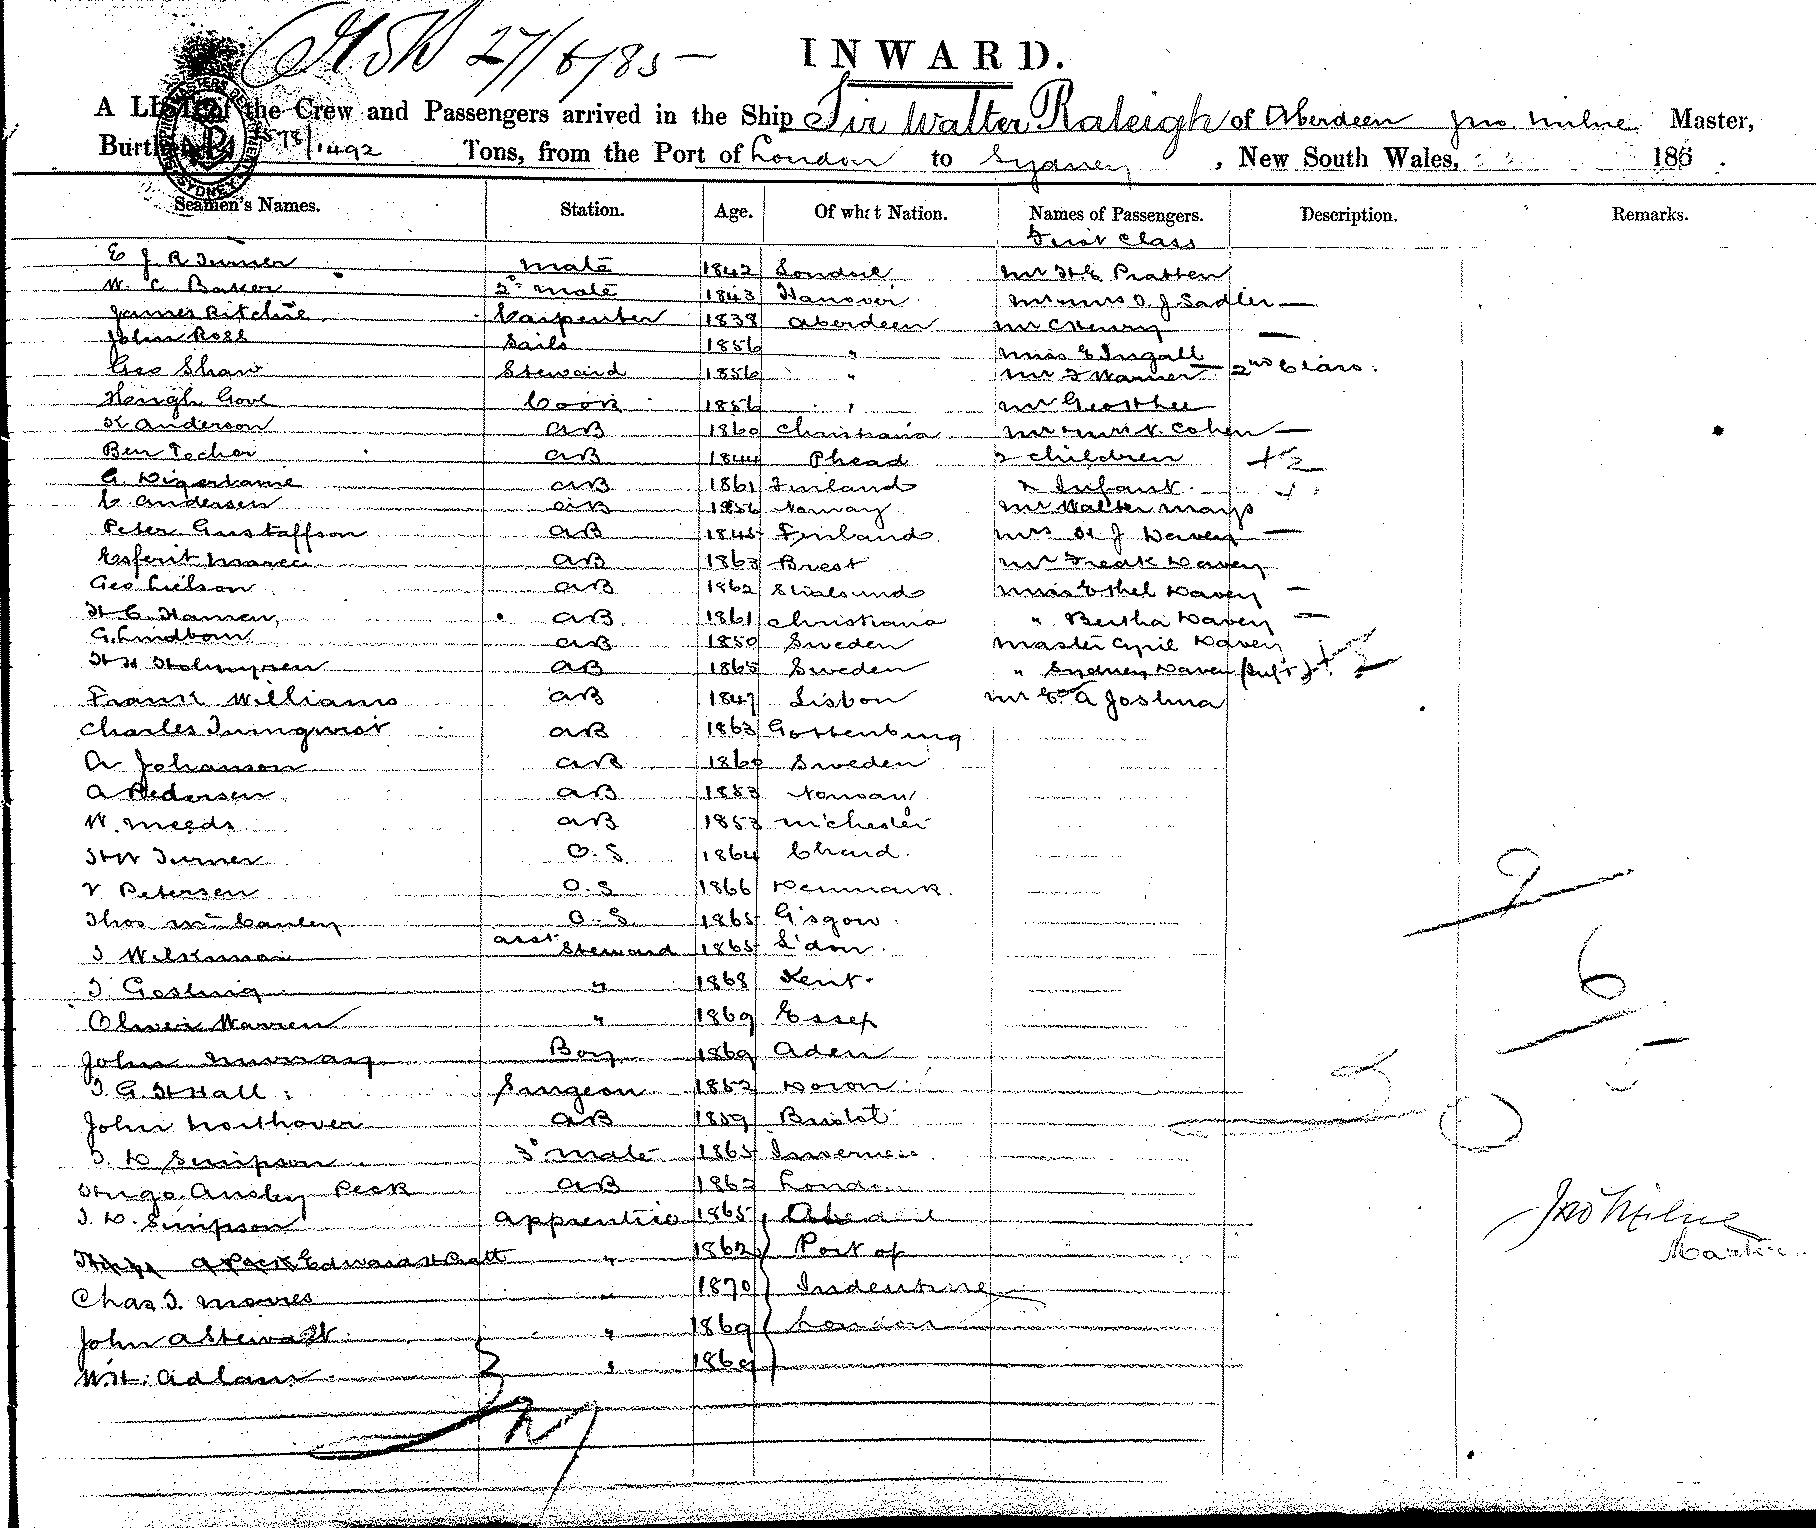 27/6/85 —
INWARD.
A LIST of the Crew and Passengers arrived in the Ship Sir Walter Raleigh of Aberdeen Jno. Milne Master,
1578/1492 Tons, from the Port of London to Sydney, New South Wales, 188 .
Seamen's Names. Station. Age. Of what Nation. Names of Passengers. Description. Remarks.
First Class
E J R Turner mate 1842 Mr H E Pratten
W. C Baker 2d mate 1843 Hanover Mr Mrs O. J Sadler —
James Ritchie Carpenter 1838 Aberdeen Mr C Henry
John Ross Sails 1856 " Miss E Ingall —
Geo Shaw Steward 1856 " Mr F Warner — 2nd Class.
Hough Gove Cook 1856 " Mr
K Anderson AB 1860 Christiania Mr & Mrs V. Cohen —
Ben AB 1844 Phead 2 children + 2
G AB 1861 Finland & Infant
C Andersen AB 1856 Norway Mr Walter Mays
Peter Gustaffson AB 1845 Finland Mrs H J Davey —
AB 1863 Brest Mr Frank Davey
Geo AB 1862 Stralsund Miss Ethel Davey —
H C Hansen AB 1861 Christiania " Bertha Davey —
G. Lindbom AB 1850 Sweden Master Cyril Davey
H H AB 1865 Sweden " Sydney Davey (Inft)
Frank Williams AB 1847 Lisbon Mr E A Joshua
Charles AB 1863 Gottenburg
A Johanson AB 1860 Sweden
A Pedersen AB 1853 Norway
W. Meeds AB 1853
H W Turner O. S 1864 Chard
V Petersen O. S 1866 Denmark
Thos O. S. 1865 G'sgow
9
J asst Steward 1865 L'don
J Gosling " 1868 Kent.
6
Oliver Warren " 1869 Essex
John Murray Boy 1869 Aden
J G. H Hall Surgeon 1862 Devon
John Northover AB 1859 Bristol
J. D Simpson 3d mate 1865 Inverness
Ansley Peck AB 1862 London
J. D. Simpson Apprentice 1865
Jno Milne
Edward H " 1862 Port of
Master
Chas J. " 1870 Indenture
John A Stewart " 1869 London
W. H. Adlam " 1869